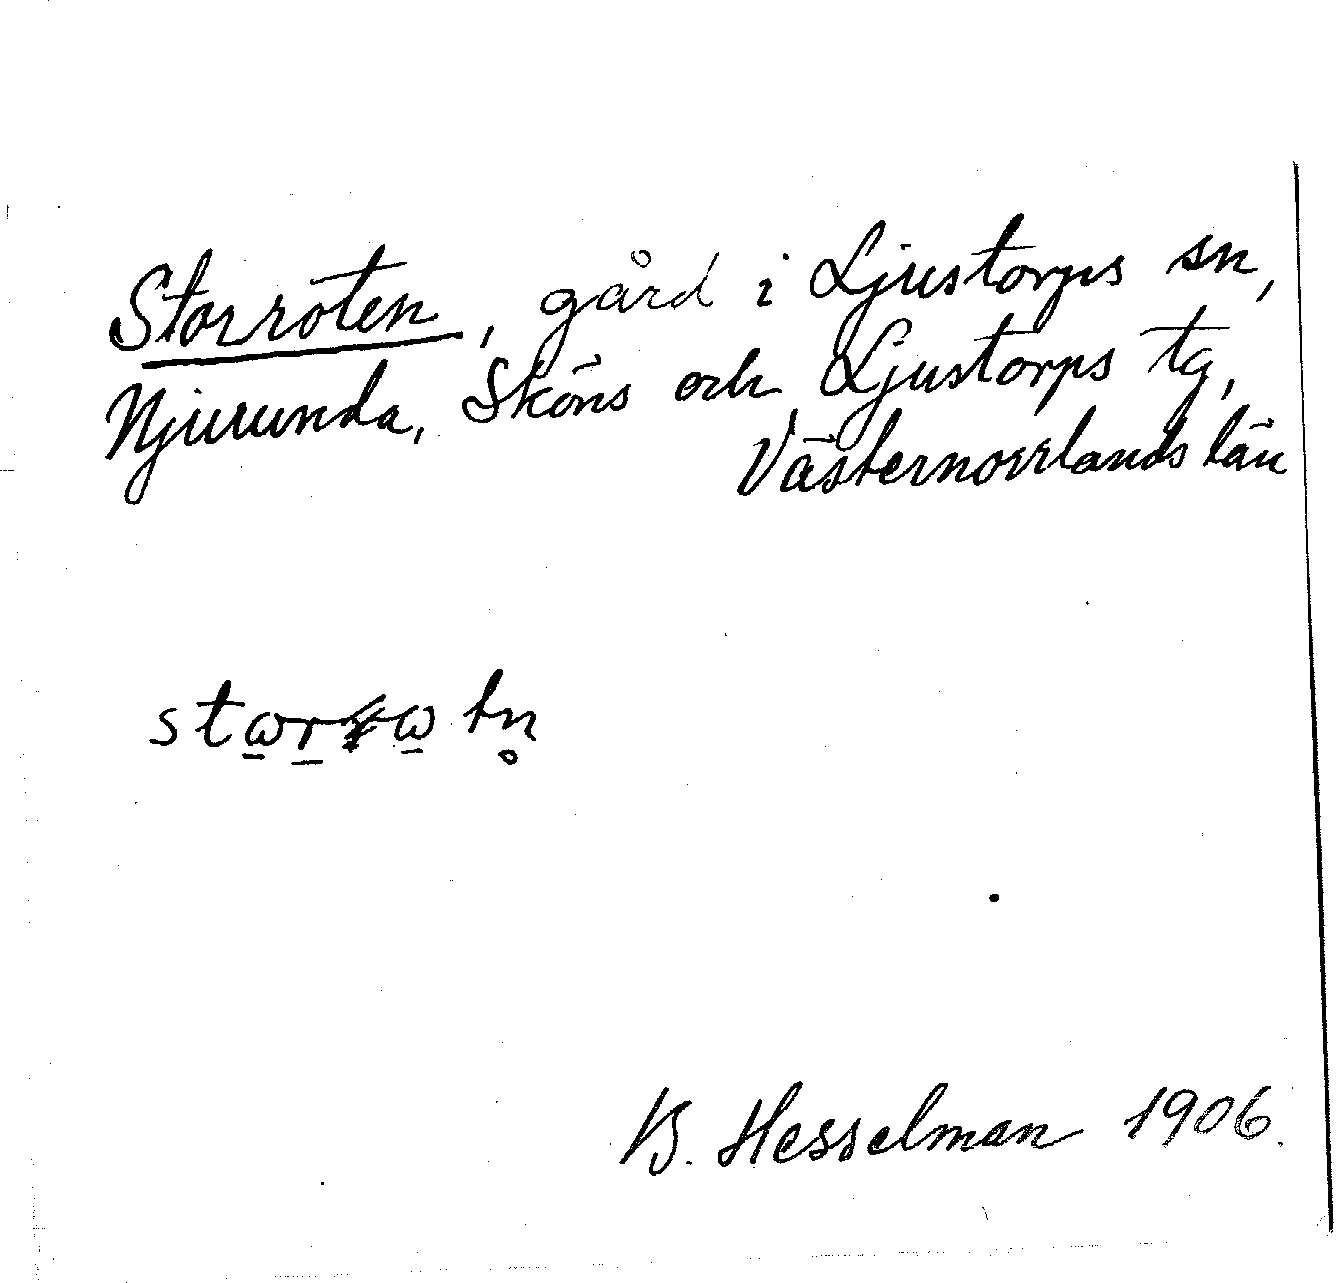 Storröten, gård i Ljustorps sn,
Njurunda, Sköns och Ljustorps tg,
Västernorrlands län
B. Hesselman 1906.